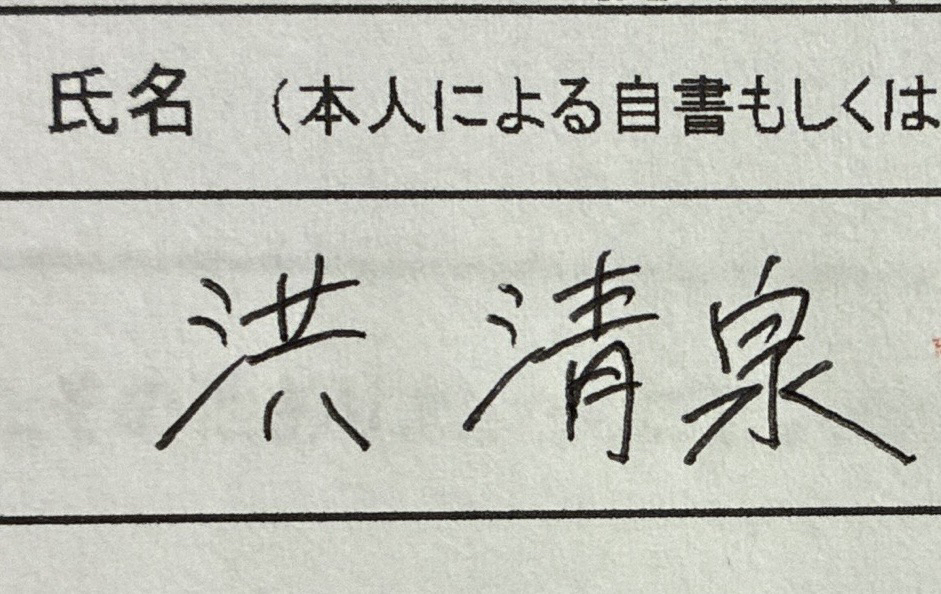 氏名 (本人による自書もしくは
洪 清泉